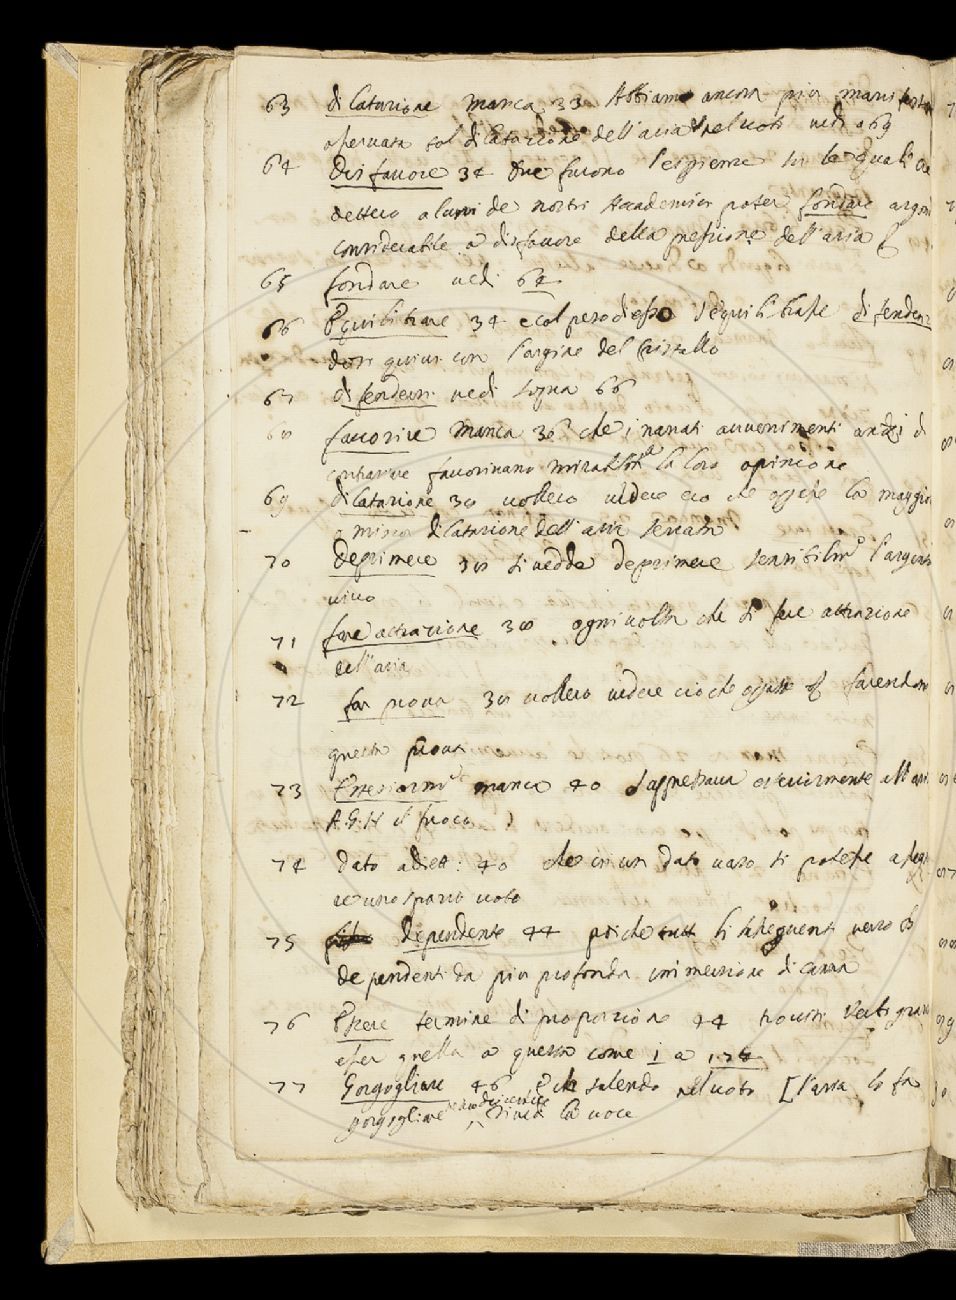 63 dilatazione manca 33 Abbiamo ancora più manifesta
osservata tal dilatazione dell'aria nel uoto uedi a 69
64 disfauore 34 Due furono l'esperienze su le quali cre
dettero alcuni de nostri Accademici poter fondare argom
considerabile a disfauore della pressione dell'aria
65 fondare uedi 64
66 Equilibrare 34 e col peso d'esso s'equilibrasse difender
dosi quiui con l'argine del Cristallo
67 difendersi uedi sopra 66
68 fauorire manca 36 che i narrati auuenimenti anzi di
contrariare fauoriuano mirabilmte la loro opinione
69 dilatazione 38 uollero uedere ciò che operasse la maggior
o minor dilatazione dell'aria serrata
70 deprimere 38 si uedde deprimere sensibilmo l'argento
uiuo
71 fare attrazione 38 ogni uolta che si fece attrazione
dell'aria
72 far proua 38 uollero uedere ciò che facendone
questa proua
73 Esteriormte manca 40 s'appressaua esteriormente all'aria
A.G.H il fuoco
74 dato adiett: 40 che in un dato uaso si potesse
re uno spazio uoto
75 dipendente 44 poiche tutt si susseguenti uerso B
dependenti da più profonda immersione di canna
76 Essere termine di proporzione 44 trouisi
esser quella a questa come 1 a 1.78
77 Gorgogliare 46 e che salendo nel uoto [l'aria lo fa
gorgogliare la uoce